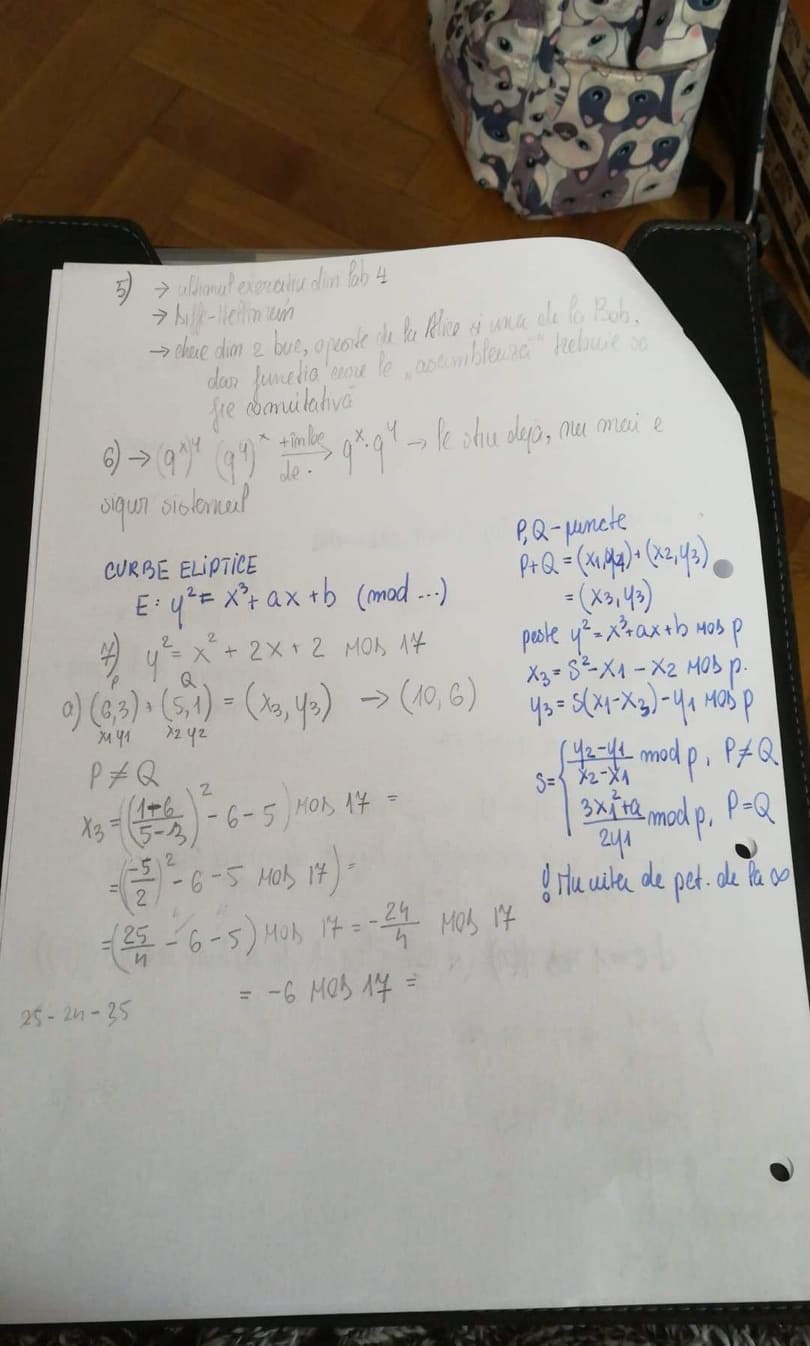 5) → ultimul exercitiu din lab 4
→ Diff-Hellman
→ cheie din 2 buc, o parte de la Alice si una de la Bob,
dar functia care le „asamblează" trebuie sa
fie comutativă
6) → (g^x)^y (g^y)^x +înloc de · → g^x · g^y → le stiu deja, nu mai e
sigur sistemul
CURBE ELIPTICE
E: y² = x³ + ax + b (mod ...)
7) y² = x² + 2x + 2 MOD 17
P Q
a) (6,3) + (5,1) = (x3, y3) → (10,6)
x1 y1 x2 y2
P ≠ Q
x3 = ((
/(5-3))² - 6 - 5) MOD 17 =
= ((-5/2)² - 6 - 5 MOD 17) =
= (25/4 - 6 - 5) MOD 17 = -24/4 MOD 17
= -6 MOD 17 =
25 - 24 - 35
P,Q - puncte
P+Q = (x1,y1) + (x2,y3)
= (x3,y3)
peste y² = x³+ax+b MOD p
x3 = S² - x1 - x2 MOD p.
y3 = S(x1-x3) - y1 MOD p
S = { (y2-y1)/(x2-x1) mod p, P≠Q
(3x1²+a)/(2y1) mod p, P=Q
! Nu uita de pct. de la ∞